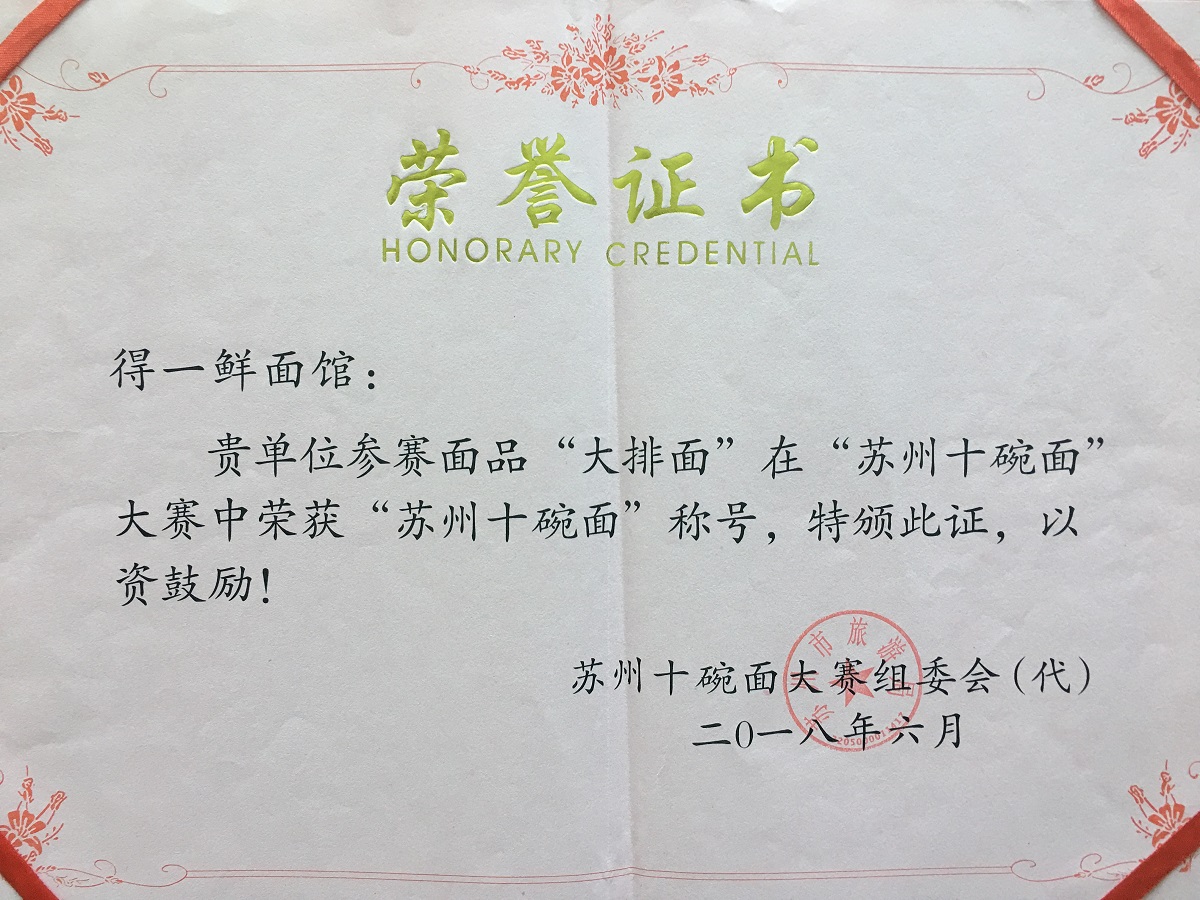 荣誉证书
HONORARY CREDENTIAL
得一鲜面馆：
贵单位参赛面品“大排面”在“苏州十碗面”
大赛中荣获“苏州十碗面”称号，特颁此证，以
资鼓励！
苏州十碗面大赛组委会（代）
二0一八年六月
苏州市旅游局